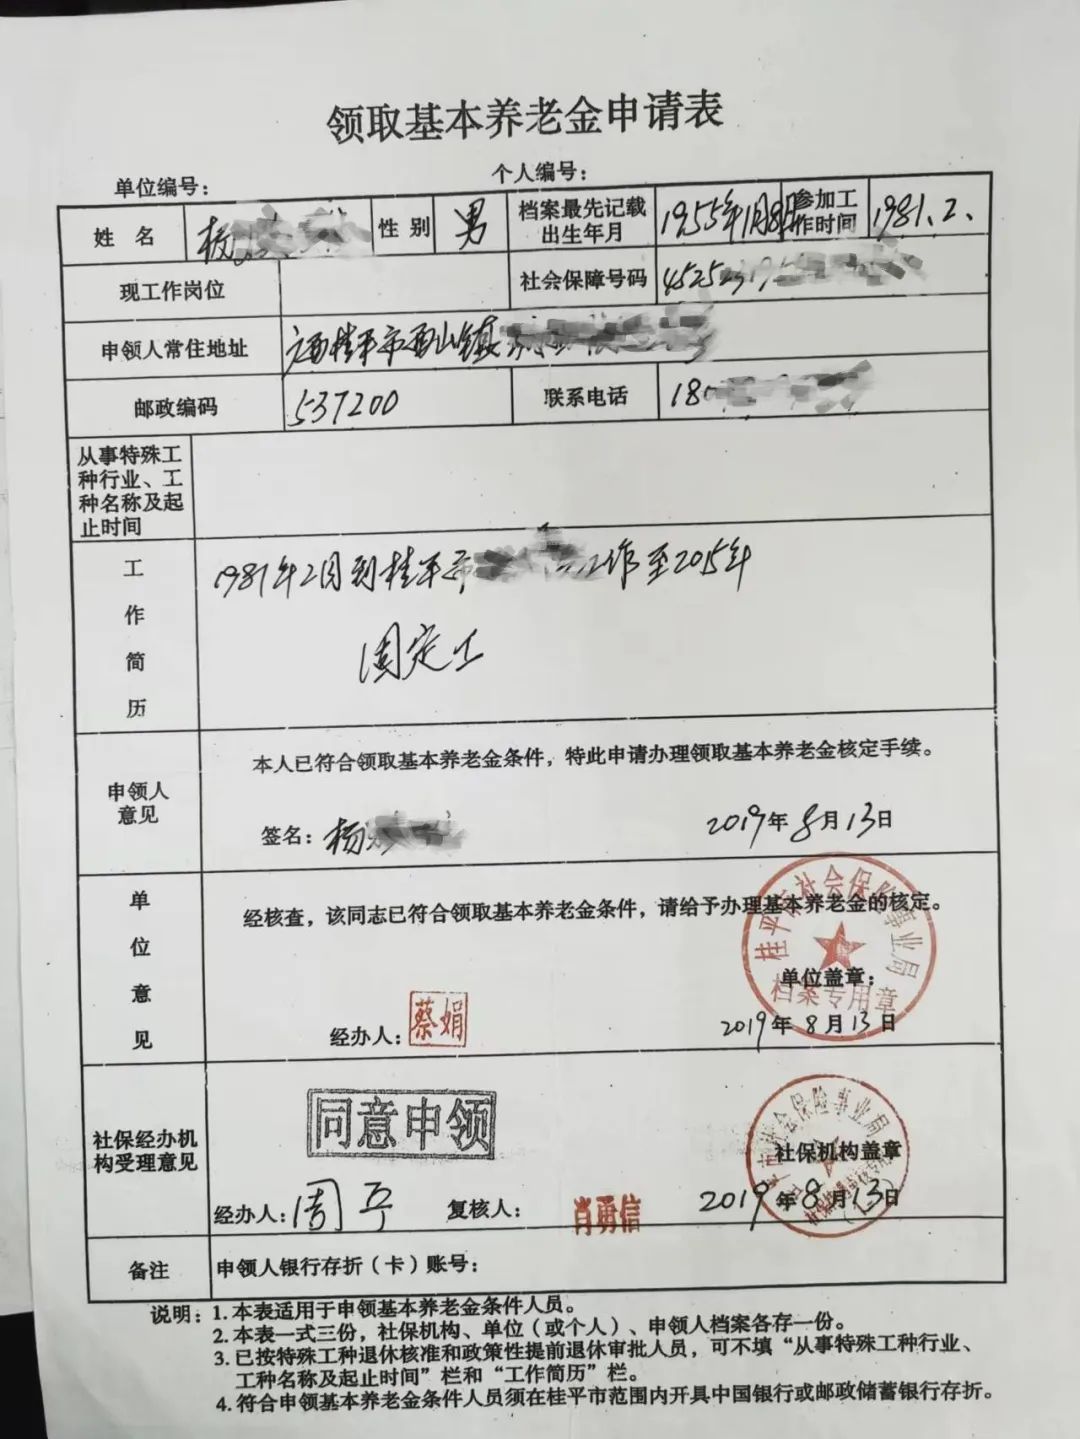 领取基本养老金申请表
单位编号： 个人编号：
姓 名 杨 性 别 男 档案最先记载出生年月 1955年1月8日 参加工作时间 1981.2.
现工作岗位 社会保障号码 45252319
申领人常住地址 广西桂平市西山镇
邮政编码 537200 联系电话 180
从事特殊工
种行业、工
种名称及起
止时间
工作简历
1981年2月到桂平市 工作至2015年
固定工
申领人
意见
本人已符合领取基本养老金条件，特此申请办理领取基本养老金核定手续。
签名：杨 2019年8月13日
单位意见
经核查，该同志已符合领取基本养老金条件，请给予办理基本养老金的核定。
桂平市社会保险事业局
档案专用章
单位盖章：
经办人：蔡娟 2019年8月13日
社保经办机
构受理意见
同意申领
桂平市社会保险事业局
社保机构盖章
经办人：周平 复核人：肖勇信 2019年8月13日
备注 申领人银行存折（卡）账号：
说明：1.本表适用于申领基本养老金条件人员。
2.本表一式三份，社保机构、单位（或个人）、申领人档案各存一份。
3.已按特殊工种退休核准和政策性提前退休审批人员，可不填“从事特殊工种行业、
工种名称及起止时间”栏和“工作简历”栏。
4.符合申领基本养老金条件人员须在桂平市范围内开具中国银行或邮政储蓄银行存折。